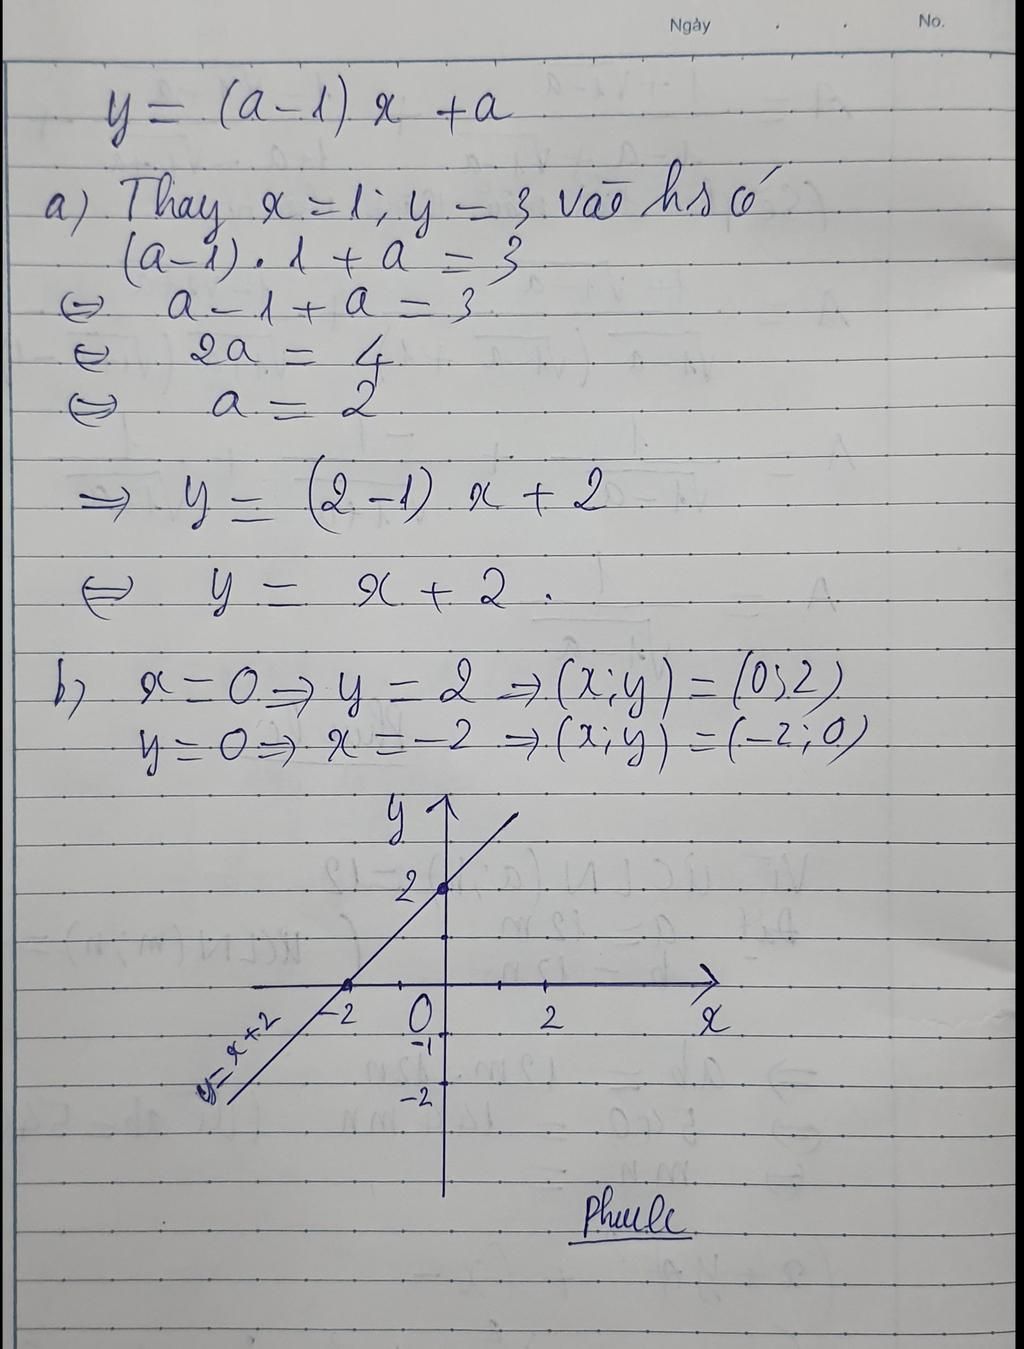 Ngày . . No.
y = (a-1) x + a
a) Thay x = 1; y = 3 vào hs có
(a-1) . 1 + a = 3
⇔ a - 1 + a = 3
⇔ 2a = 4
⇔ a = 2
⇒ y = (2-1) x + 2
⇔ y = x + 2 .
b) x = 0 ⇒ y = 2 ⇒ (x; y) = (0; 2)
y = 0 ⇒ x = -2 ⇒ (x; y) = (-2; 0)
y
2
-2 O 2 x
y = x + 2
-1
-2